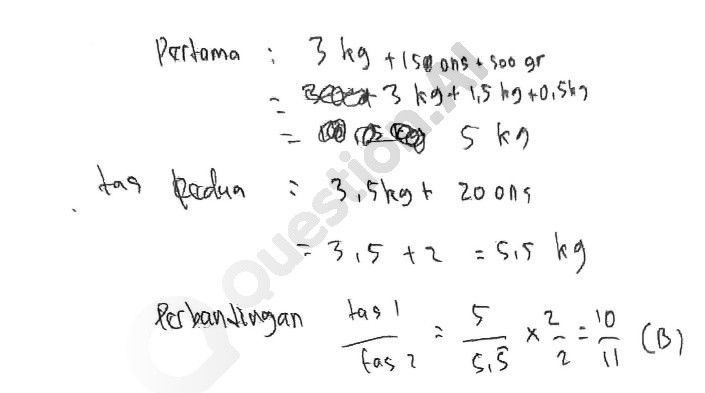 Pertama : 3 kg + 15 ons + 500 gr
= 3 kg + 1,5 kg + 0,5 kg
= 5 kg
tas kedua = 3,5kg + 20 ons
= 3,5 + 2 = 5,5 kg
Perbandingan tas 1 / tas 2 = 5 / 5,5 × 2 / 2 = 10 / 11 (B)
Question.AI